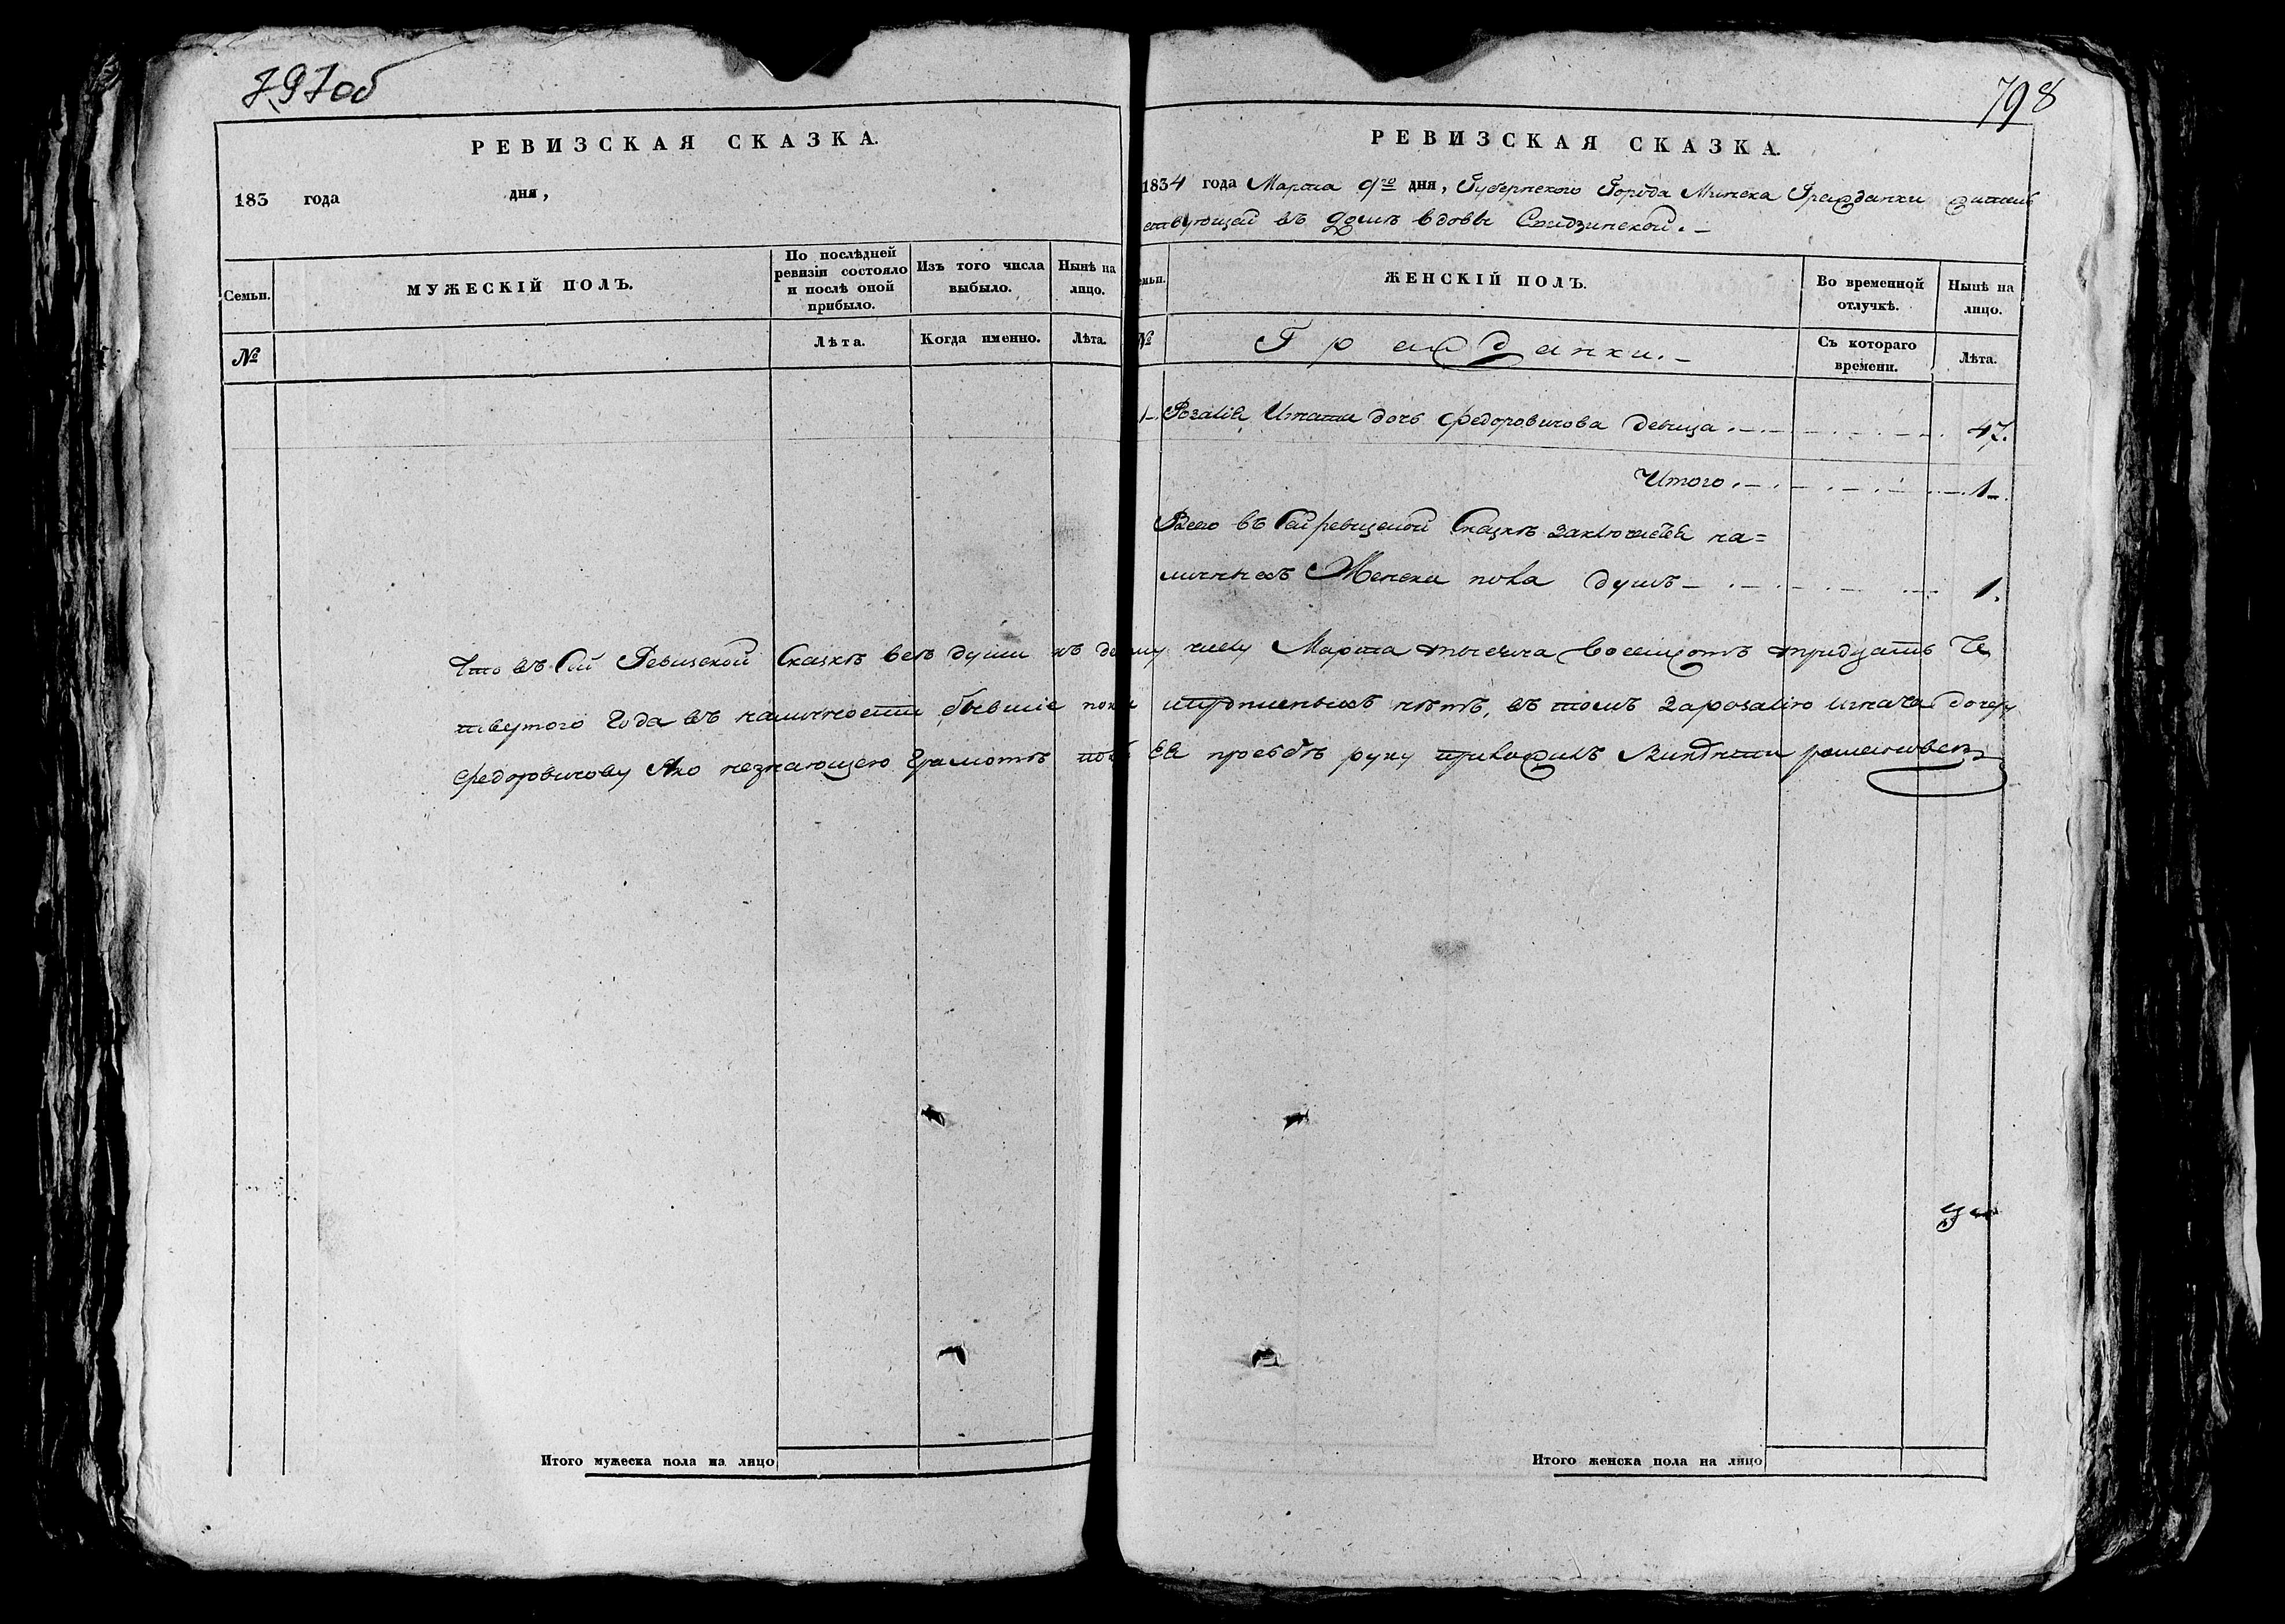 797об
РЕВИЗСКАЯ СКАЗКА.
183 года дня,
Семьи.
МУЖЕСКІЙ ПОЛЪ.
По послѣдней ревизіи состояло и послѣ оной прибыло.
Изъ того числа выбыло.
Нынѣ на лицо.
№
Лѣта.
Когда именно.
Лѣта.
Итого мужеска пола на лицо
798
РЕВИЗСКАЯ СКАЗКА.
1834 года Марта 9го дня, Губернского Города Минска Гражданки житель
ствующей въ домѣ вдовы
емьи.
ЖЕНСКІЙ ПОЛЪ.
Во временной отлучкѣ.
Нынѣ на лицо.
№
Гражданки.
Съ котораго времени.
Лѣта.
1. Розалія Игната дочь Федоровичова девица 47.
Итого 1.
Всего въ сей ревизской Сказкѣ заключается на=
личныхъ Женска пола душъ 1.
Что въ сей Ревизской Сказкѣ всѣ души къ числу Марта тысяча восемсотъ тридцать Че
твертого Года въ наличности бывшіе нѣтъ, въ томъ за розалію игната дочерь
Федоровичову яко незнающею грамотѣ по ея прозбѣ руку приложилъ
Итого женска пола на лицо